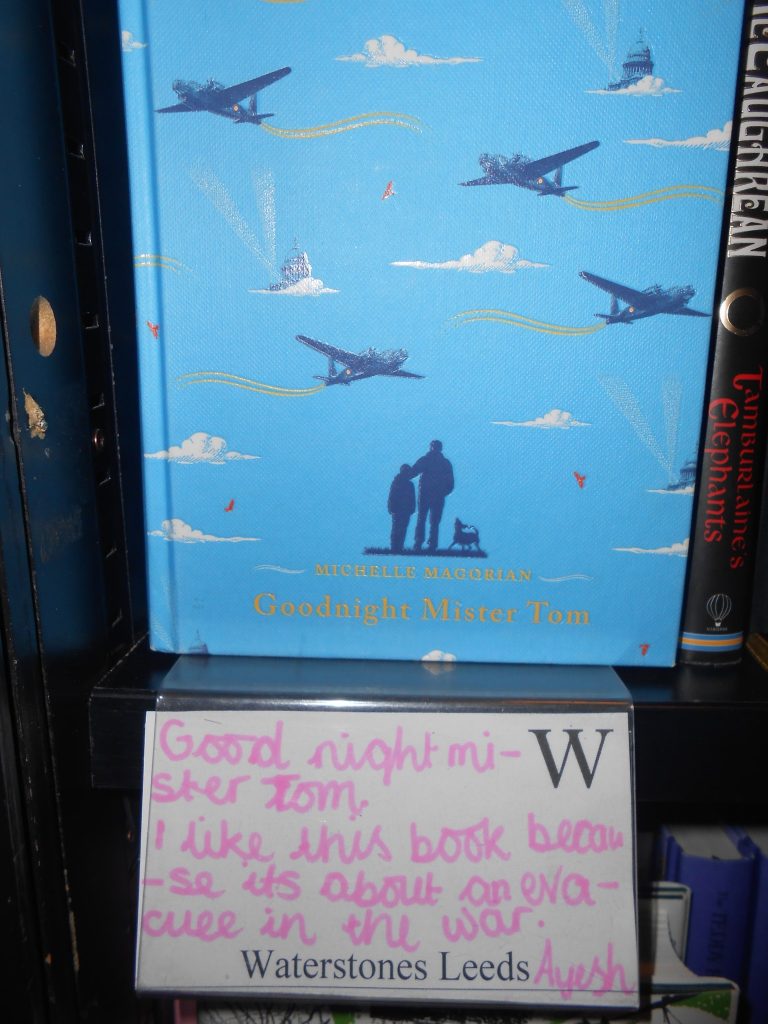 MICHELLE MAGORIAN
Goodnight Mister Tom
TAMBURLAINE'S
ELEPHANTS
W
Good night mi-
ster Tom.
I like this book becau
-se its about an eva-
cuee in the war.
Waterstones Leeds
Ayesh